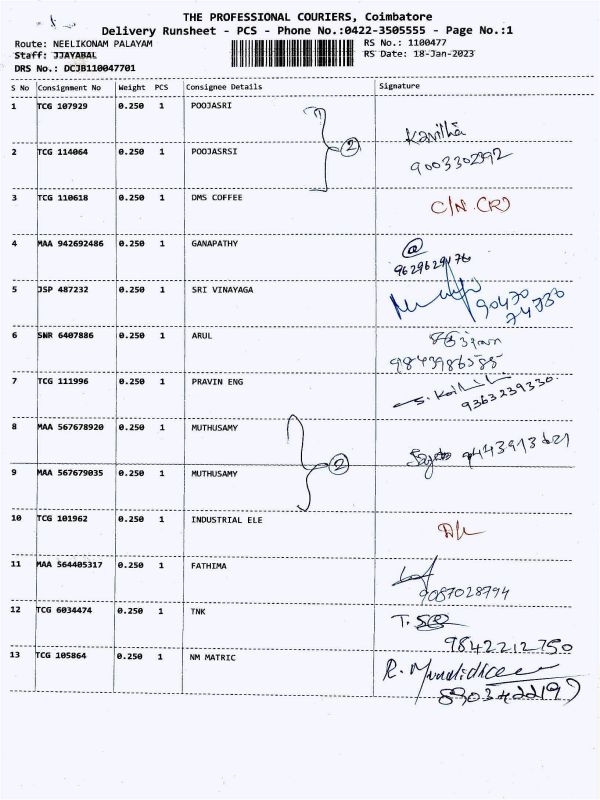 THE PROFESSIONAL COURIERS, Coimbatore
Delivery Runsheet - PCS - Phone No.:0422-3505555 - Page No.:1
Route: NEELIKONAM PALAYAM RS No.: 1100477
Staff: JJAYABAL RS Date: 18-Jan-2023
DRS No.: DCJB110047701
S No Consignment No Weight PCS Consignee Details Signature
1 TCG 107929 0.250 1 POOJASRI
Kavitha
2 TCG 114064 0.250 1 POOJASRSI 2
9003302392
3 TCG 110618 0.250 1 DMS COFFEE C/N (R)
4 MAA 942692486 0.250 1 GANAPATHY
9629629176
5 JSP 487232 0.250 1 SRI VINAYAGA
90470
74330
6 SNR 6407886 0.250 1 ARUL
9843986585
7 TCG 111996 0.250 1 PRAVIN ENG
9363239330
8 MAA 567678920 0.250 1 MUTHUSAMY
9443913621
9 MAA 567679035 0.250 1 MUTHUSAMY 2
10 TCG 101962 0.250 1 INDUSTRIAL ELE
11 MAA 564405317 0.250 1 FATHIMA
9087028794
12 TCG 6034474 0.250 1 TNK
9842212750
13 TCG 105864 0.250 1 NM MATRIC